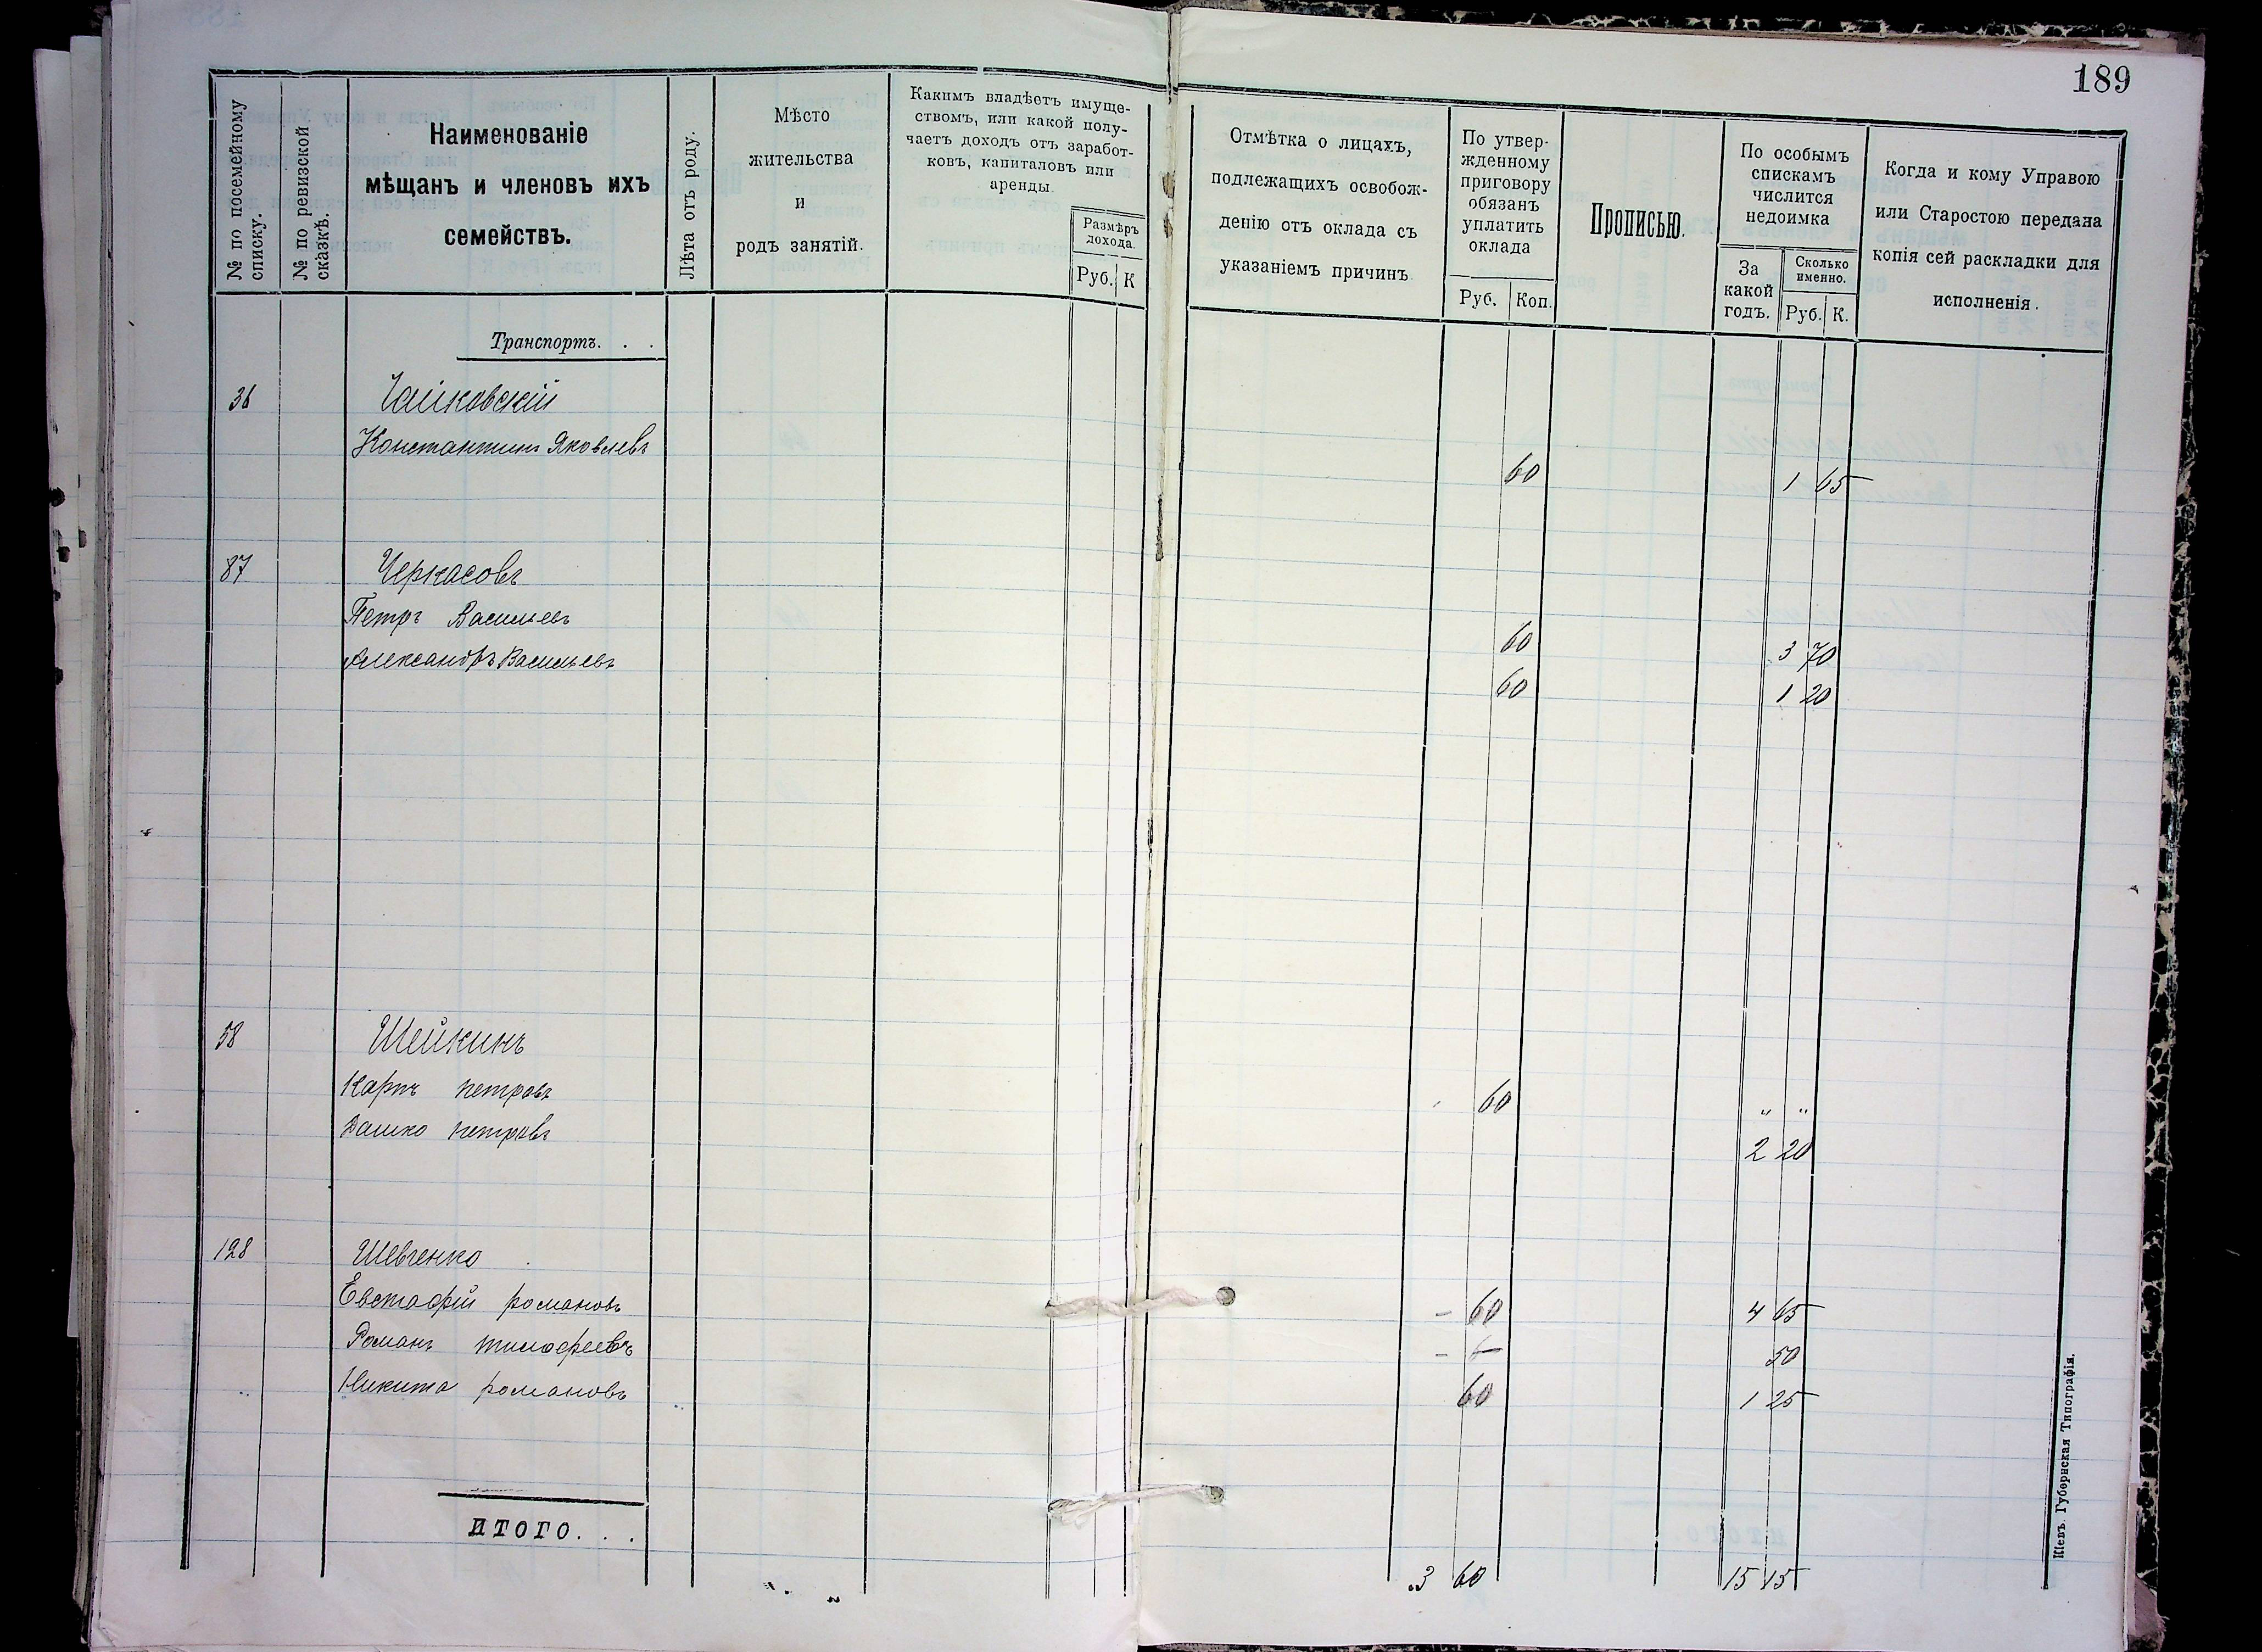 189
№ по посемейному списку.
№ по ревизской сказкѣ.
Наименованіе
мѣщанъ и членовъ ихъ
семействъ.
Лѣта отъ роду.
Мѣсто
жительства
и
родъ занятій.
Какимъ владѣетъ имуще-
ствомъ, или какой полу-
чаетъ доходъ отъ заработ-
ковъ, капиталовъ или
аренды.
Размѣръ
дохода.
Руб. К
Отмѣтка о лицахъ,
подлежащихъ освобож-
денію отъ оклада съ
указаніемъ причинъ
По утвер-
жденному
приговору
обязанъ
уплатить
оклада
Руб. Коп.
Прописью.
По особымъ
спискамъ
числится
недоимка
За
какой
годъ.
Сколько
именно.
Руб. К.
Когда и кому Управою
или Старостою передана
копія сей раскладки для
исполненія.
Транспортъ. . .
36 Чайковскій
Константинъ Яковлевъ 60 1 65
87 Черкасовъ
Петръ Васильевъ 60 3 70
Александръ Васильевъ 60 1 20
58 Шейкинъ
Карпъ Петровъ 60 " "
Петровъ 2 20
128 Шевченко
Евстафій Романовъ - 60 4 65
Романъ Тимофеевъ - 50
Никита Романовъ 60 1 25
ИТОГО. . .
3 60 15 15
Кіевъ. Губернская Типографія.